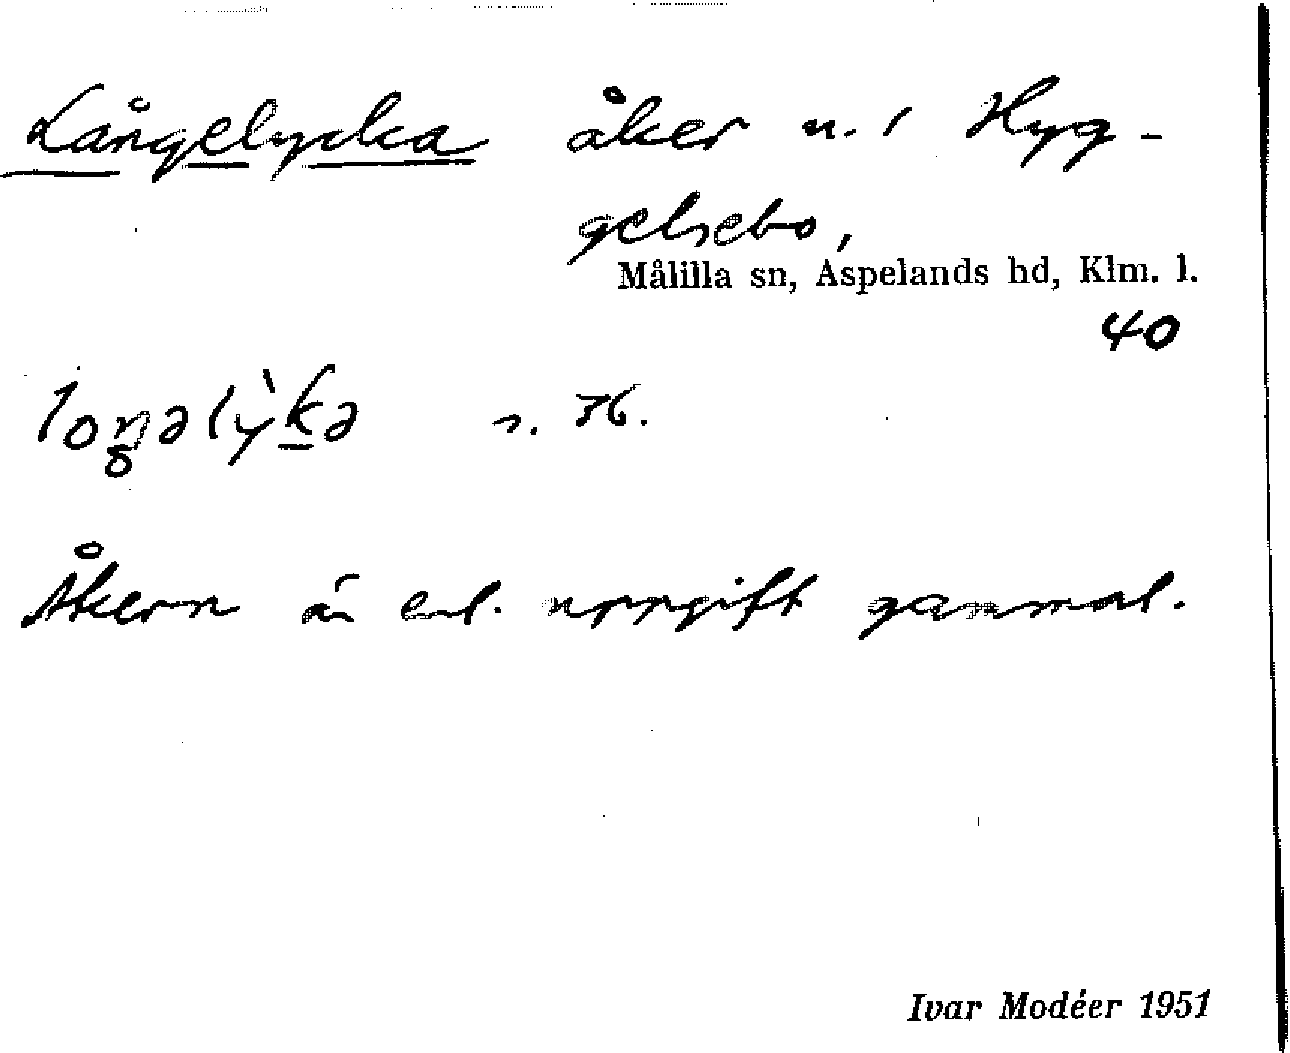 Långelycka åker n. i Hyg-
gelsebo,
Målilla sn, Aspelands hd, Klm. l.
40
loŋəlỳkə s. 36.
Åkern är enl. uppgift gammal.
Ivar Modéer 1951